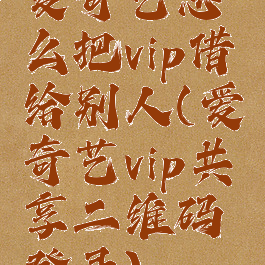 爱奇艺怎
么把vip借
给别人(爱
奇艺vip共
享二维码
登录)